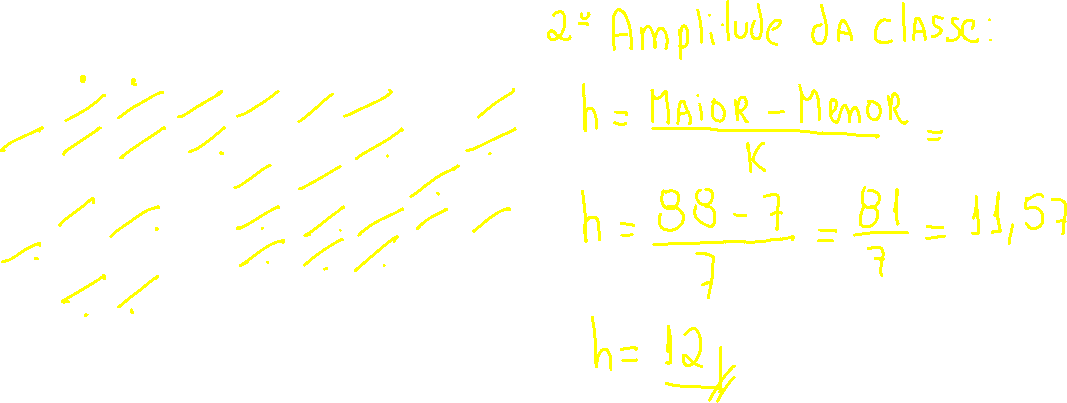 2º Amplitude da classe:
h = Maior - Menor / K =
h = 88 - 7 / 7 = 81 / 7 = 11,57
h = 12